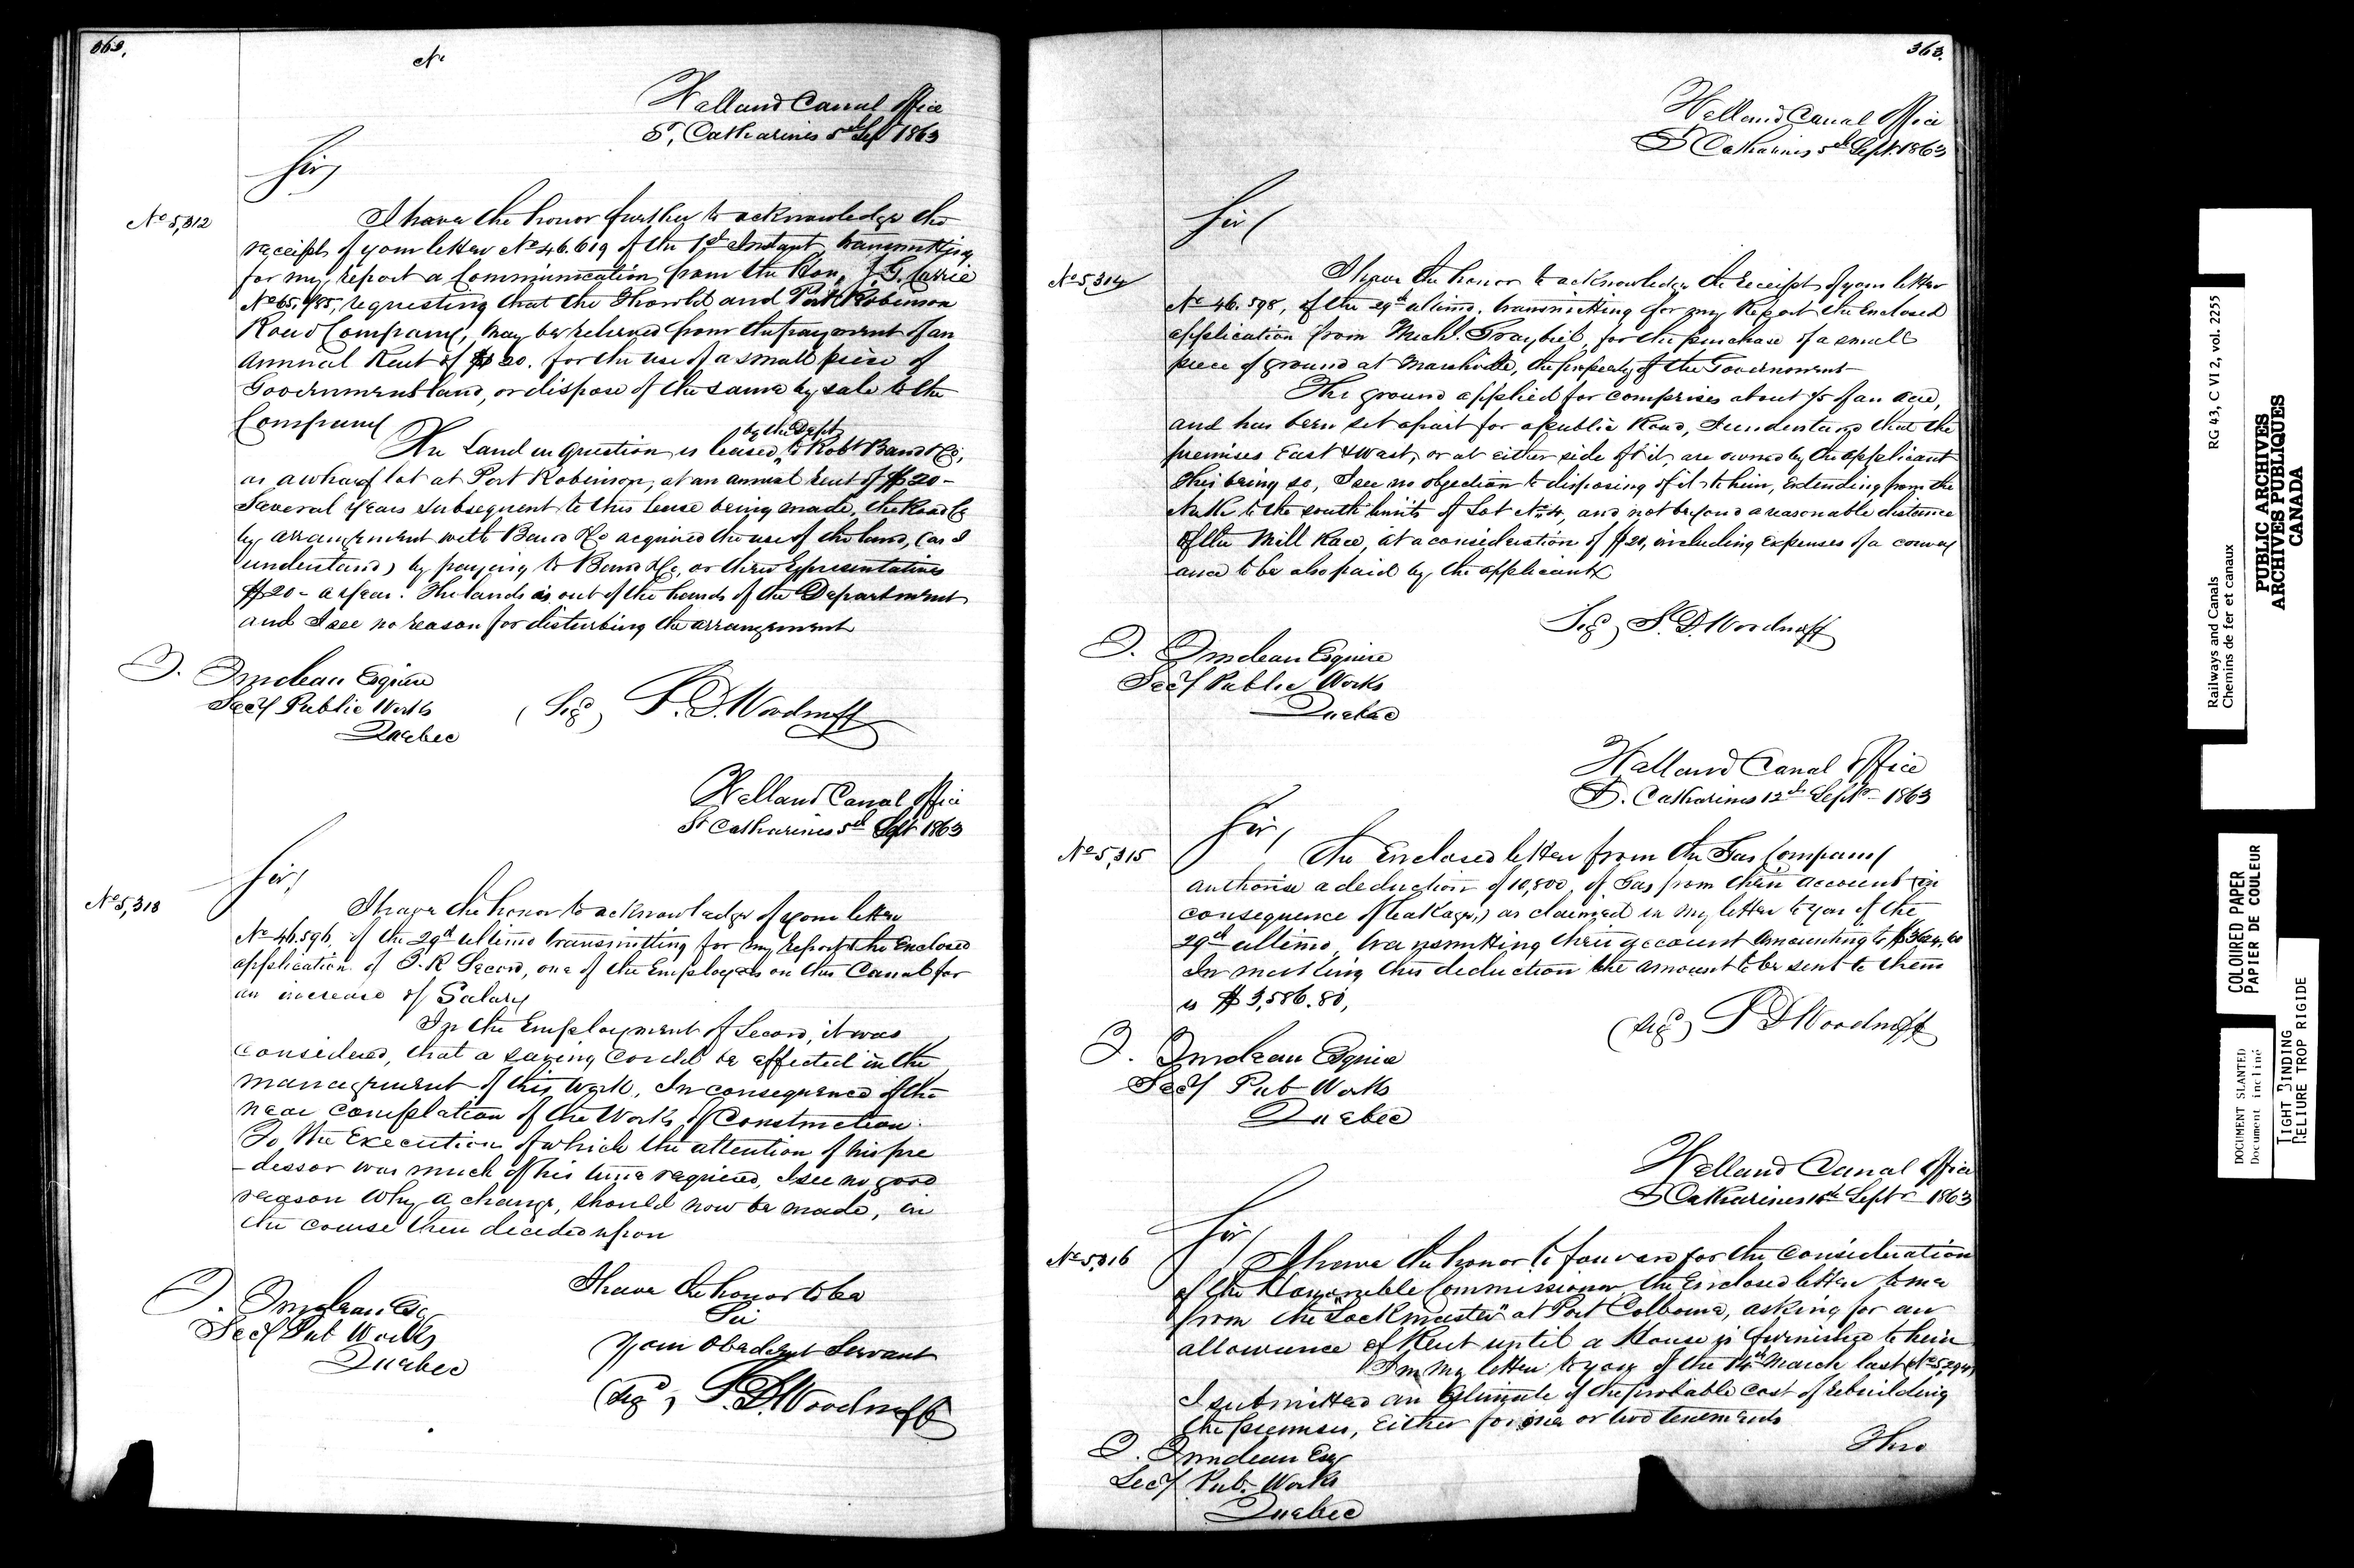 363.
No
Welland Canal Office
St, Catharines 5th Sept 1863
Sir,
No 5,312
I have the honor further to acknowledge the
receipt of your letter No 46.619 of the 1st Instant, transmitting
for my report a Communication from the Hon. J. G. Currie
requesting that the Thorold and Port Robinson
Road Company, may be relieved from the payment of an
annual Rent of $20. for the use of a small piece of
Government land, or dispose of the same by sale to the
Company
by the Dept
The Land in question is leased to Robt Band & Co,
as a wharf lot at Port Robinson, at an annual rent of $20 -
Several years subsequent to this lease being made, the Road Co
by arrangement with Band & Co acquired the use of the land, (as I
understand) by paying to Band & Co, or their representatives
$20 - a year. The lands is out of the hands of the Department
and I see no reason for disturbing the arrangement
T. Trudeau Esquire
Secy Public Works
Quebec
(Sigd) S. D. Woodruff
Welland Canal Office
St Catharines 5th Sept 1863
Sir,
No 5,313
I have the honor to acknowledge of your letter
No 46.596, of the 29th ultimo transmitting for my report the Enclosed
application of J. R Secord, one of the Employees on this Canal for
an increase of Salary
In the Employment of Secord, it was
considered, that a saving could be effected in the
management of this work, In consequence of the
near completion of the Works of Construction.
To the Execution of which the attention of his pre
-dessor was much of his time required, I see no good
reason why a change, should now be made, in
the course then decided upon
I have the honor to be
Sir
Your Obedient Servant
(Sigd) S. D. Woodruff
T. Trudeau Esq
Secy Pub Works
Quebec
363.
Welland Canal Office
St Catharines 5th Sept. 1863
Sir
No 5,314
I have the honor to acknowledge the receipt of your letter
No 46.598, of the 29th ultimo. transmitting for my Report the Enclosed
application from Michl. Graybiel, for the purchase of a small
piece of ground at Marshville, the property of the Government -
The ground applied for comprises about 1/5 of an acre,
and has been set apart for a public Road, I understand that the
premises East & West, or at either side of it, are owned by the applicant
This being so, I see no objection to disposing of it to him, extending from the
North to the south limits of Lot No 4, and not beyond a reasonable distance
of the Mill Race, at a consideration of $20, including Expenses of a convey
ance to be also paid by the applicant
Sigd) S. D. Woodruff
T. Trudeau Esquire
Secy Public Works
Quebec
Welland Canal Office
St. Catharines 12th Septr - 1863
Sir,
No 5,315
The Enclosed letter from the Gas Company
authorise a deduction of 10,800, of Gas from their account (in
consequence of leakage,) as claimed in my letter to you of the
29th ultimo, transmitting their account amounting to
In making this deduction the amount to be sent to them
is $3,586.80,
(Sigd) S D Woodruff
T. Trudeau Esquire
Secy Pub Works
Quebec
Welland Canal Office
St Catharines Septr 1863
Sir
No 5,316
I have the honor to forward for the Consideration
of the Honorable Commissioner, the Enclosed letter to me
from the "Lockmaster" at Port Colborne, asking for an
allowance of Rent until a House is furnished to him
In my letter to you of the 14th March last
I submitted an Estimate of the probable cost of rebuilding
the premises, Either for one or two tenements
The
T. Trudeau Esq
Secy Pub. Works
Quebec
Railways and Canals
Chemins de fer et canaux
RG 43, C VI 2, vol. 2255
PUBLIC ARCHIVES
ARCHIVES PUBLIQUES
CANADA
COLOURED PAPER
PAPIER DE COULEUR
DOCUMENT SLANTED
Document incliné
TIGHT BINDING
RELIURE TROP RIGIDE